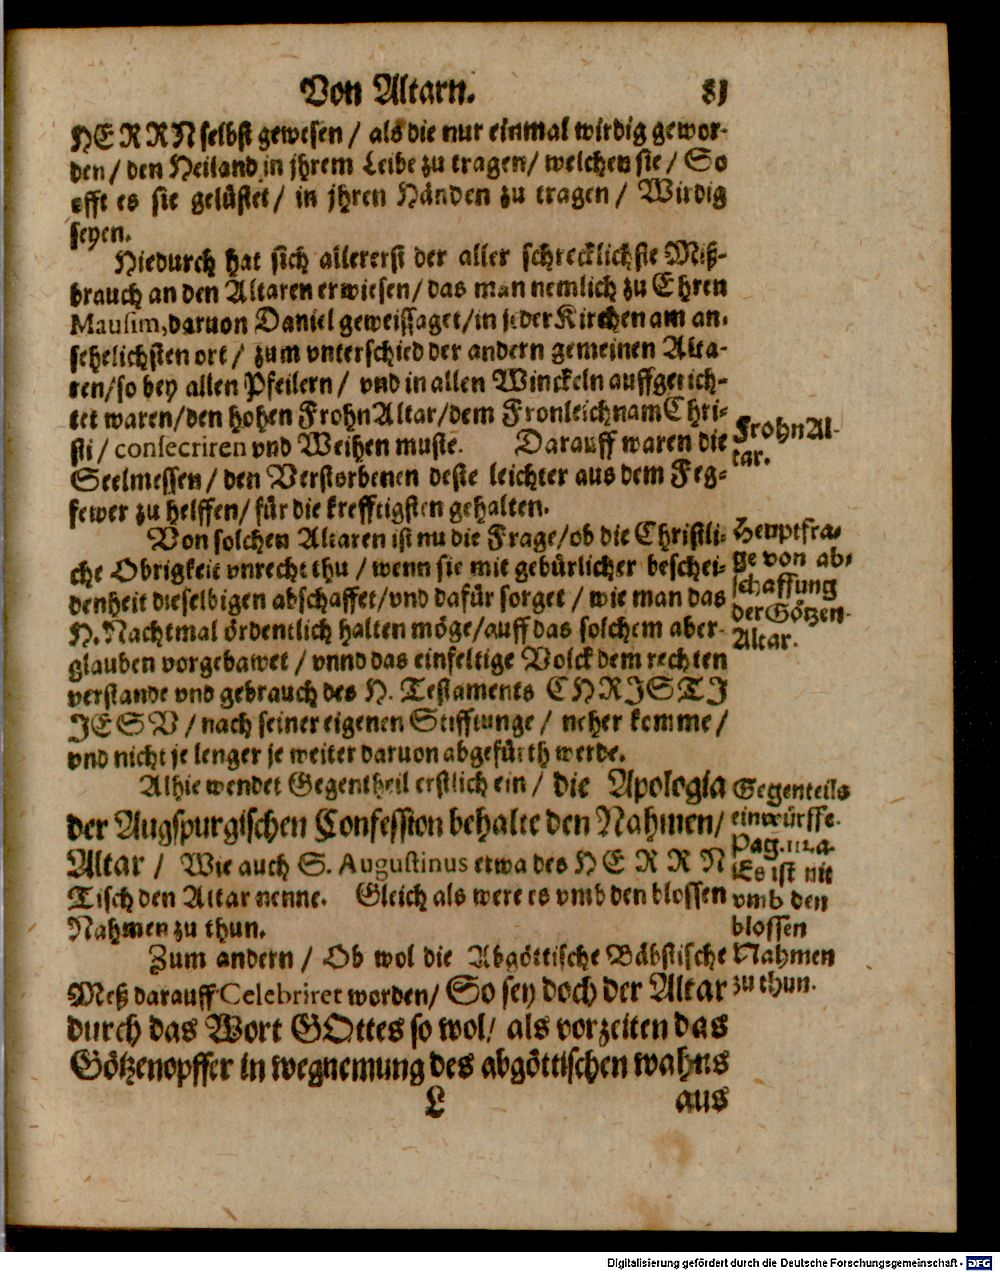 Von Altarn. 81
HERRN selbst gewesen / als die nur einmal wirdig gewor-
den / den Heiland in jhrem Leibe zu tragen / welchen sie / So
offt es sie gelüstet / in jhren Händen zu tragen / Wirdig
seyen.
Hiedurch hat sich allererst der aller schrecklichste Miß-
brauch an den Altaren erwiesen / das man nemlich zu Ehren
Mausim, daruon Daniel geweissaget / in jeder Kirchen am an-
sehelichsten ort / zum vnterschied der andern gemeinen Alta-
ren / so bey allen Pfeilern / vnd in allen Winckeln auffgerich-
tet waren / den hohen FrohnAltar / dem Fronleichnam Chri-
sti / consecriren vnd Weihen muste. Darauff waren die
FrohnAl-
tar.
Seelmessen / den Verstorbenen deste leichter aus dem Feg-
fewer zu helffen / für die krefftigsten gehalten.
Von solchen Altaren ist nu die Frage / ob die Christli-
che Obrigkeit vnrecht thu / wenn sie mit gebürlicher beschei-
denheit dieselbigen abschaffet / vnd dafür sorget / wie man das
H. Nachtmal ördentlich halten möge / auff das solchem aber-
glauben vorgebawet / vnnd das einfeltige Volck dem rechten
verstande vnd gebrauch des H. Testaments CHRJSTJ
JESV / nach seiner eigenen Stifftunge / neher komme /
vnd nicht je lenger je weiter daruon abgefürth werde.
Heuptfra-
ge von ab-
schaffung
der Götzen-
Altar.
Alhie wendet Gegentheil erstlich ein / die Apologia
der Augspurgischen Confession behalte den Nahmen /
Altar / Wie auch S. Augustinus etwa des HERRN
Tisch den Altar nenne. Gleich als were es vmb den blossen
Nahmen zu thun.
Gegenteils
einwürffe.
Pag. 111. a.
Es ist nit
vmb den
blossen
Nahmen
zu thun.
Zum andern / Ob wol die Abgöttische Bäbstische
Meß darauff Celebriret worden / So sey doch der Altar
durch das Wort GOttes so wol / als vorzeiten das
Götzenopffer in wegnemung des abgöttischen wahns
L aus
Digitalisierung gefördert durch die Deutsche Forschungsgemeinschaft - DFG